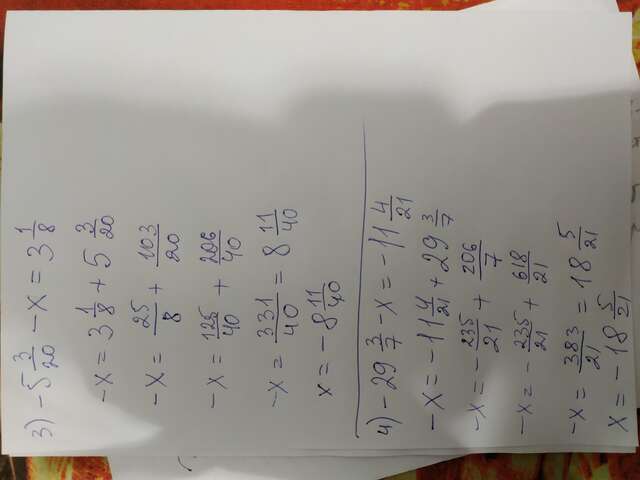 3) -5 3/20 - x = 3 1/8
-x = 3 1/8 + 5 3/20
-x = 25/8 + 103/20
-x = 125/40 + 206/40
-x = 331/40 = 8 11/40
x = -8 11/40
4) -29 3/7 - x = -11 4/21
-x = -11 4/21 + 29 3/7
-x = -235/21 + 206/7
-x = -235/21 + 618/21
-x = 383/21 = 18 5/21
x = -18 5/21